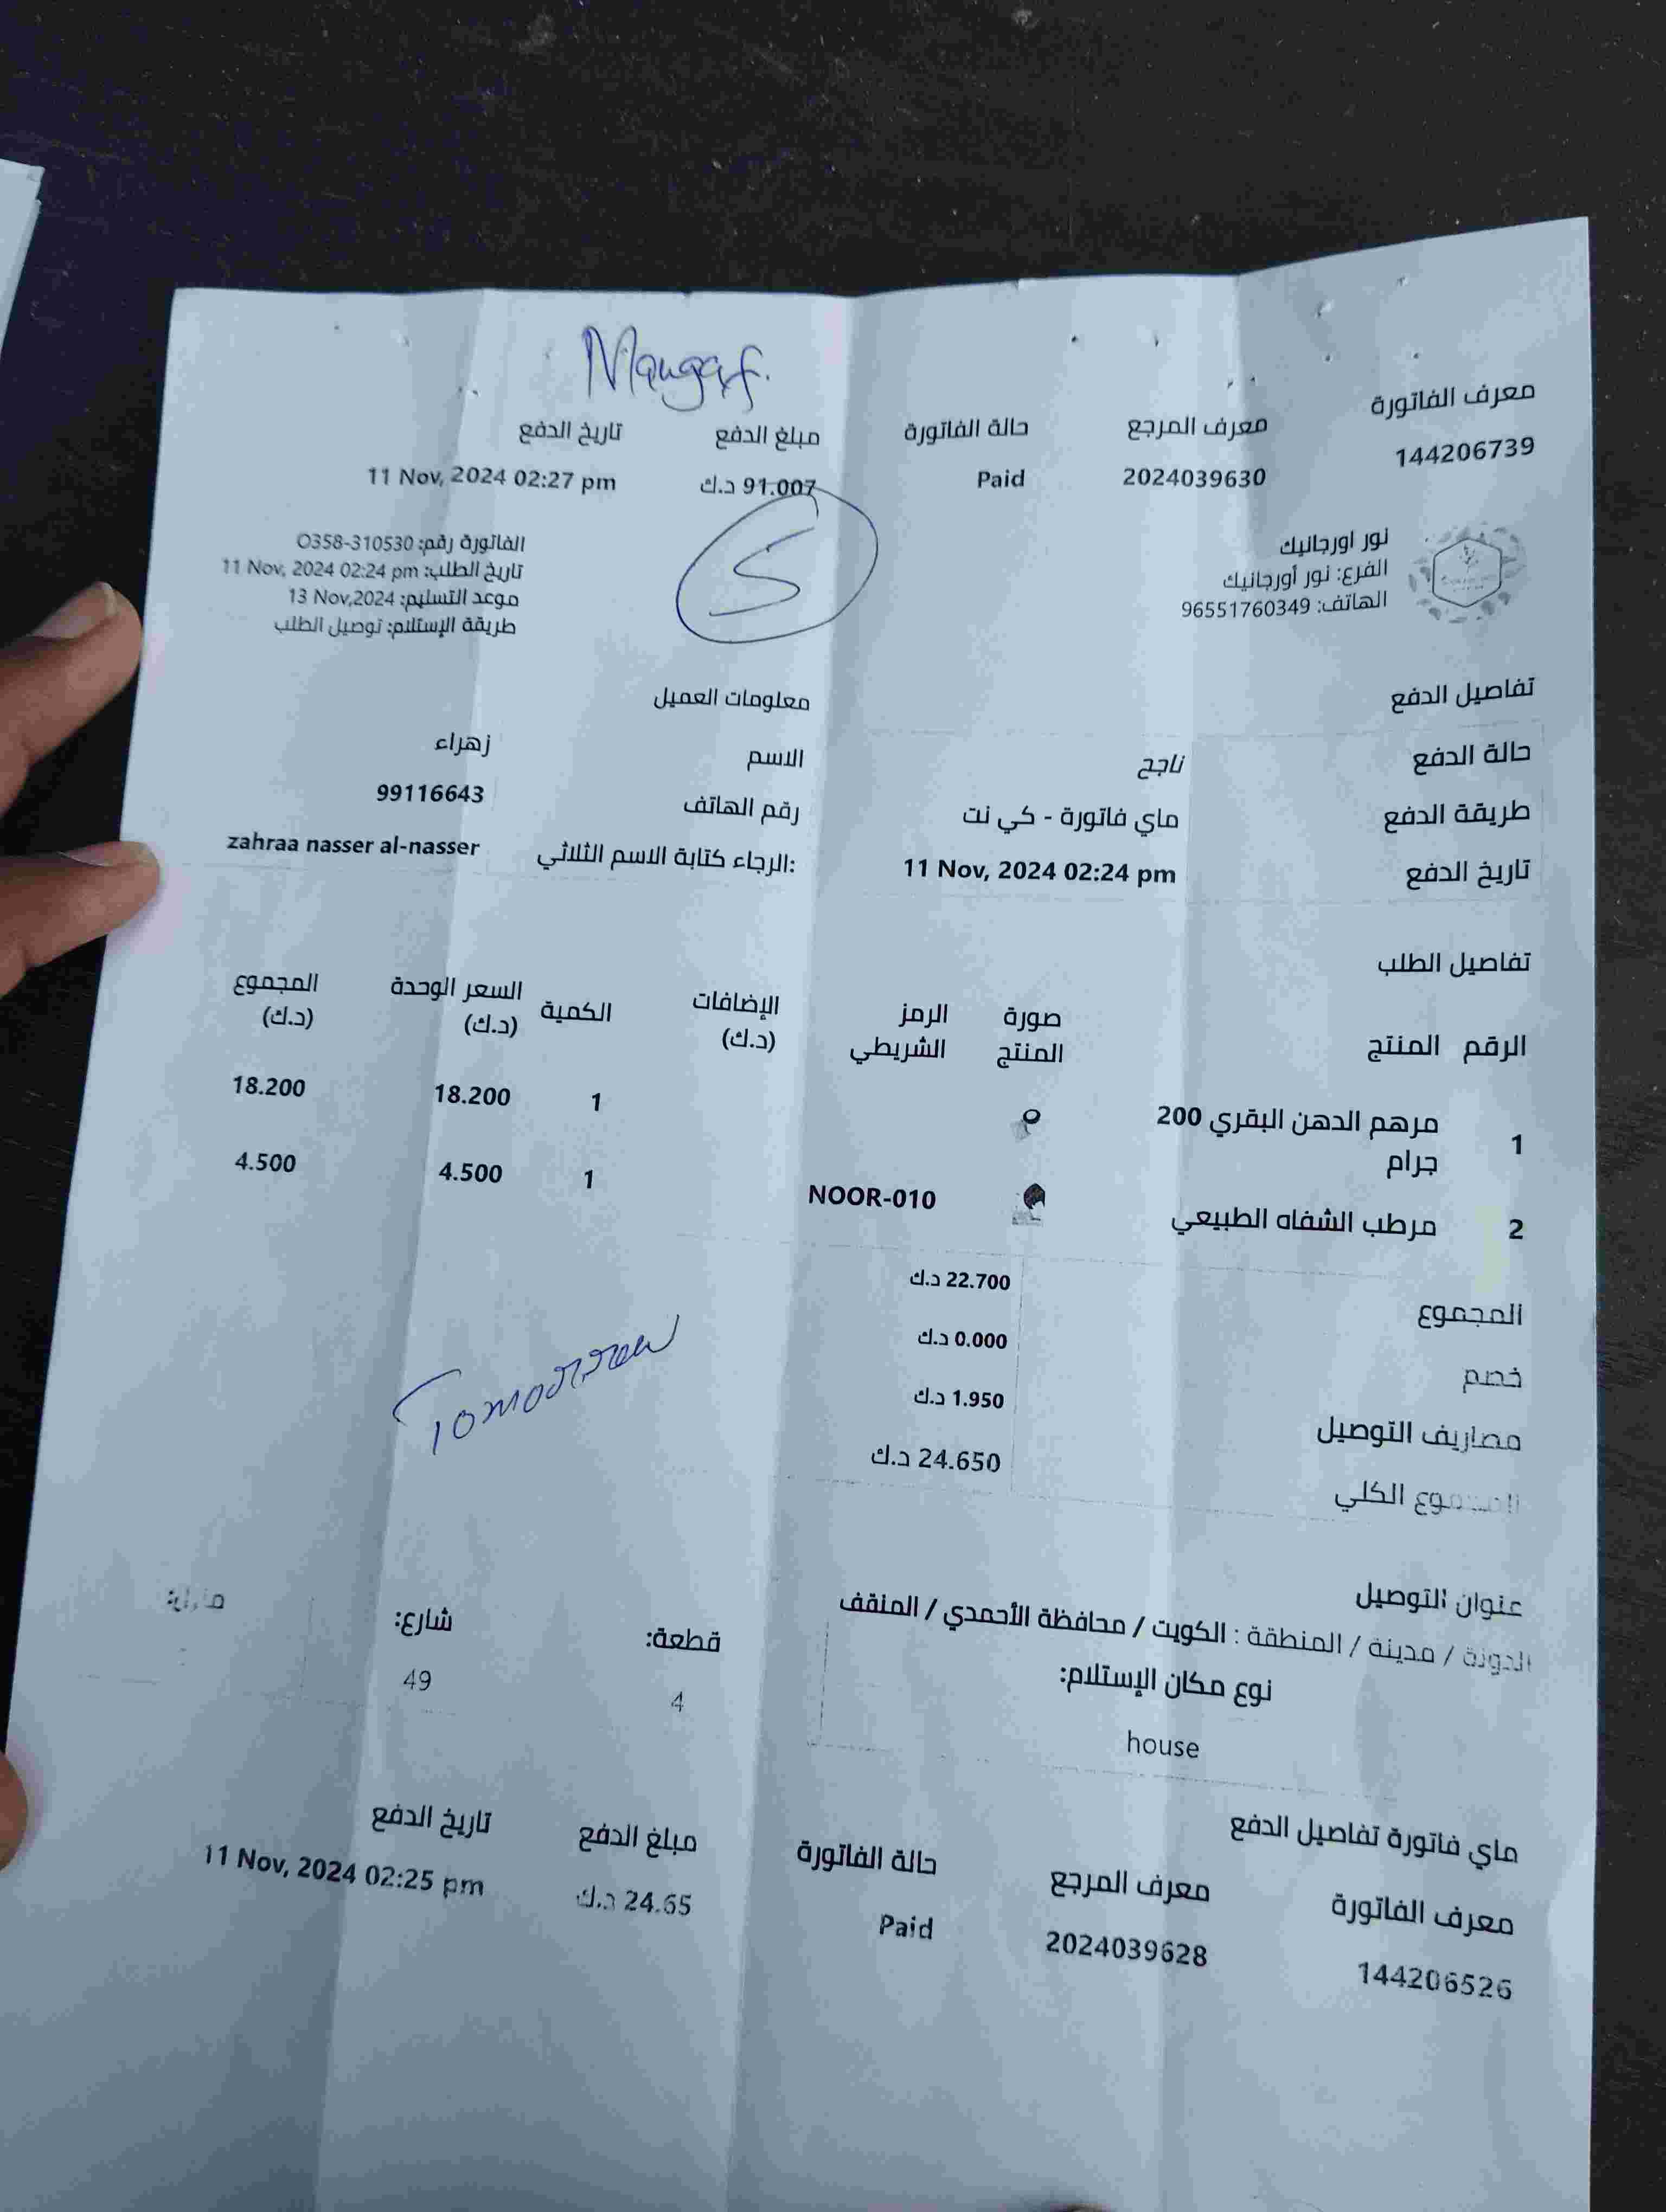 Mangaf.
معرف الفاتورة معرف المرجع حالة الفاتورة مبلغ الدفع تاريخ الدفع
144206739 2024039630 Paid 91.007 د.ك 11 Nov, 2024 02:27 pm
S
نور اورجانيك
الفرع: نور أورجانيك
الهاتف: 96551760349
الفاتورة رقم: O358-310530
تاريخ الطلب: 11 Nov, 2024 02:24 pm
موعد التسليم: 13 Nov,2024
طريقة الإستلام: توصيل الطلب
تفاصيل الدفع
حالة الدفع ناجح
طريقة الدفع ماي فاتورة - كي نت
تاريخ الدفع 11 Nov, 2024 02:24 pm
معلومات العميل
الاسم زهراء
رقم الهاتف 99116643
الرجاء كتابة الاسم الثلاثي: zahraa nasser al-nasser
تفاصيل الطلب
الرقم المنتج صورة الرمز الإضافات الكمية السعر الوحدة المجموع
المنتج الشريطي (د.ك) (د.ك) (د.ك)
1 مرهم الدهن البقري 200 1 18.200 18.200
جرام
2 مرطب الشفاه الطبيعي NOOR-010 1 4.500 4.500
المجموع 22.700 د.ك
خصم 0.000 د.ك
مصاريف التوصيل 1.950 د.ك
المجموع الكلي 24.650 د.ك
Tomorrow
عنوان التوصيل
الدولة / مدينة / المنطقة : الكويت / محافظة الأحمدي / المنقف
نوع مكان الإستلام: قطعة: شارع:
house 4 49
ماي فاتورة تفاصيل الدفع
معرف الفاتورة معرف المرجع حالة الفاتورة مبلغ الدفع تاريخ الدفع
144206526 2024039628 Paid 24.65 د.ك 11 Nov, 2024 02:25 pm